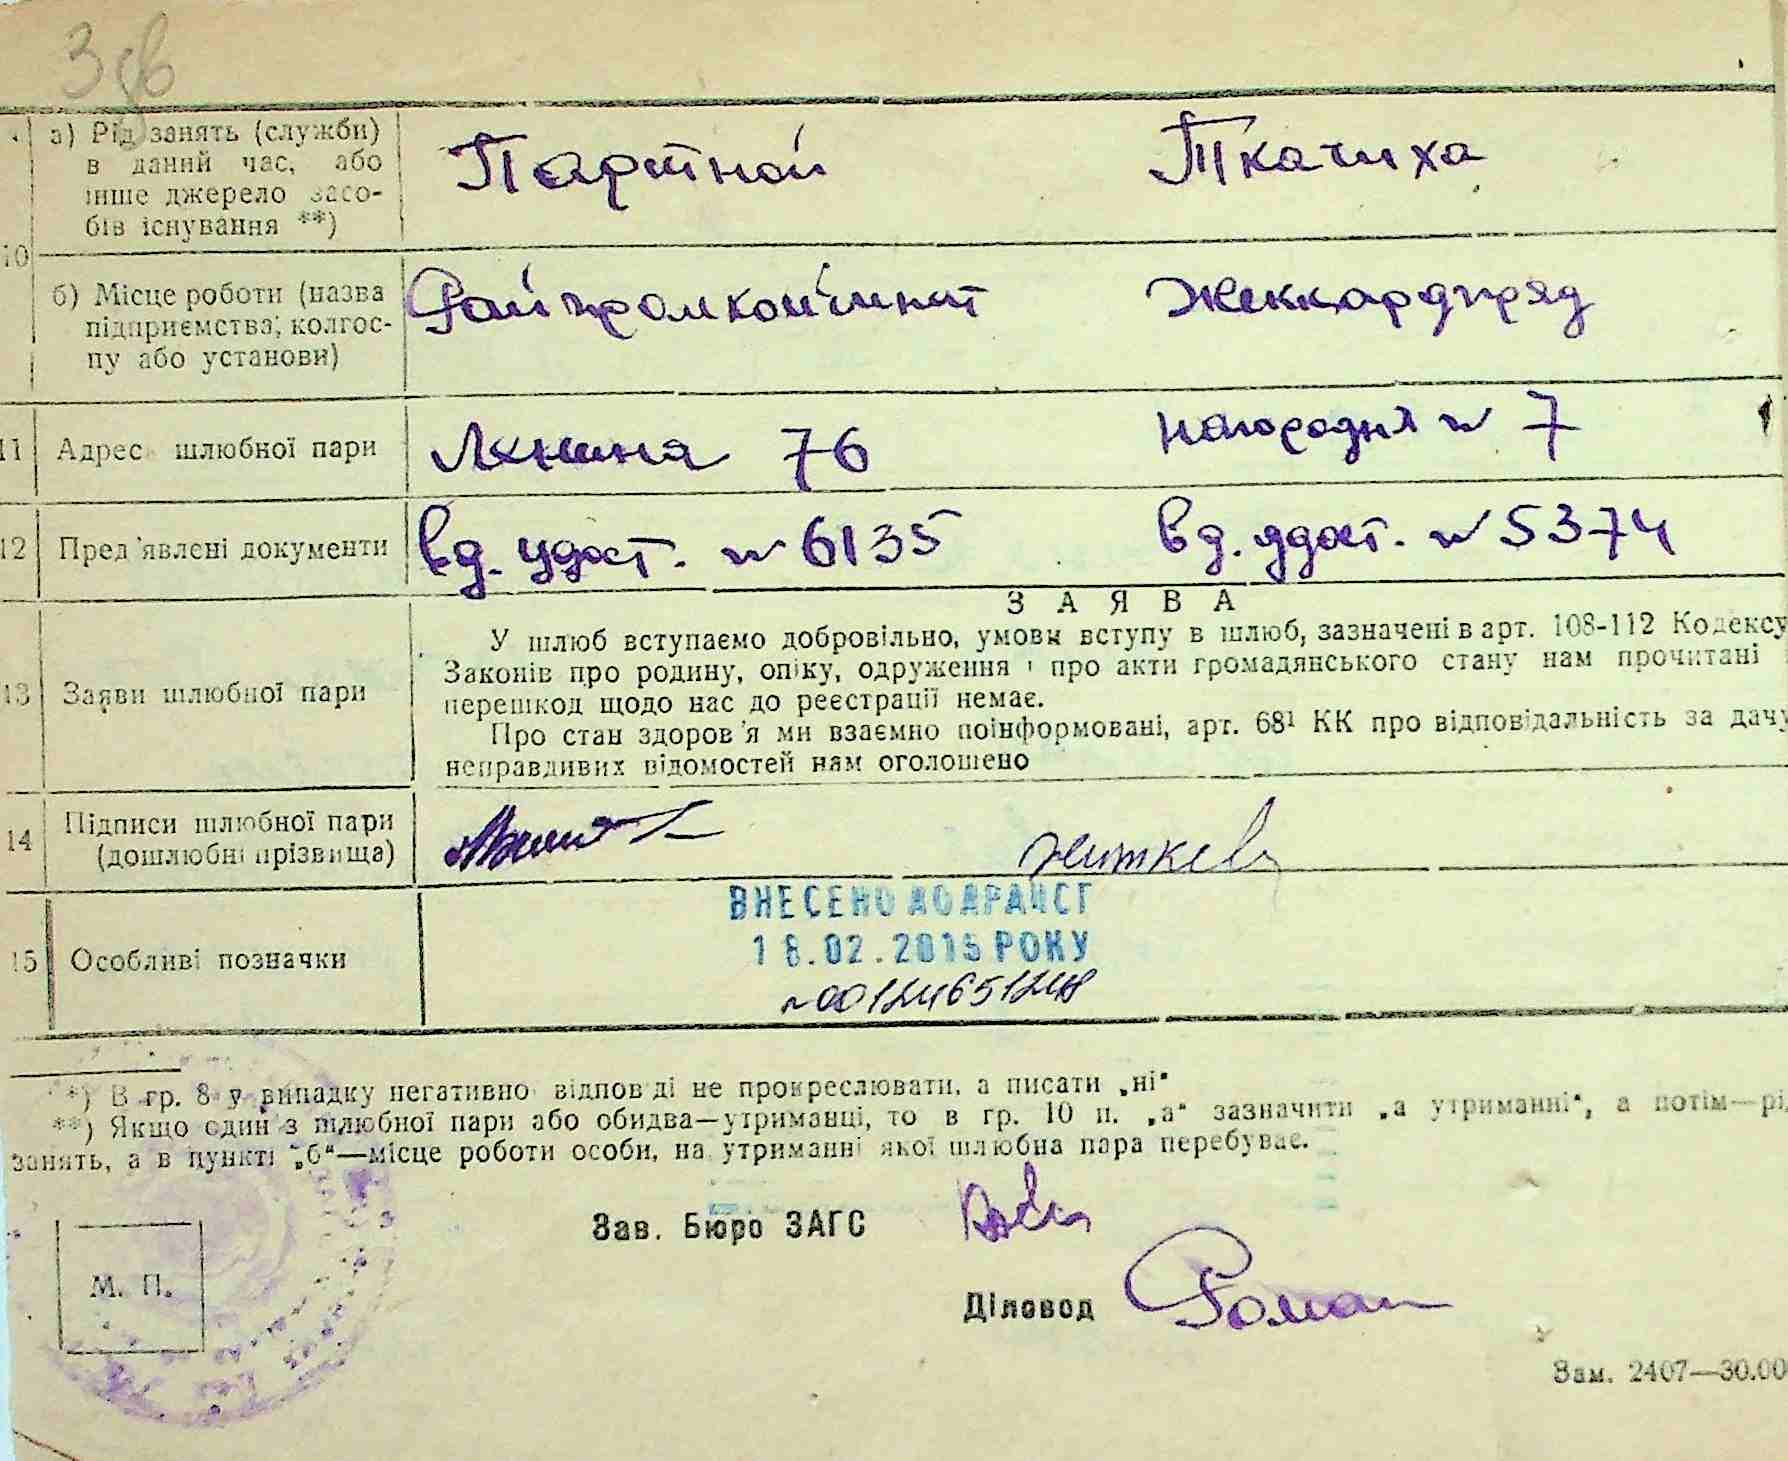 Зав
а) Рід занять (служби)
в даний час, або
інше джерело засо-
бів існування **)
Партной
Ткачиха
10
б) Місце роботи (назва
підприємства, колгос-
пу або установи)
Райпромкомбінат
11
Адрес шлюбної пари
Леніна 76
Нагородня № 7
12
Пред'явлені документи
вд. удост. № 6135
вд. удост. № 5374
13
Заяви шлюбної пари
ЗАЯВА
У шлюб вступаємо добровільно, умови вступу в шлюб, зазначені в арт. 108-112 Кодексу
Законів про родину, опіку, одруження і про акти громадянського стану нам прочитані
перешкод щодо нас до реєстрації немає.
Про стан здоров'я ми взаємно поінформовані, арт. 68¹ КК про відповідальність за дачу
неправдивих відомостей нам оголошено
14
Підписи шлюбної пари
(дошлюбні прізвища)
15
Особливі позначки
ВНЕСЕНО ДО ДРАЦСГ
18.02.2015 РОКУ
№00124651248
*) В гр. 8 у випадку негативної відповіді не прокреслювати, а писати „ні“
**) Якщо один з шлюбної пари або обидва—утриманці, то в гр. 10 п. „а“ зазначити „а утриманні“, а потім—рід
занять, а в пункті „б“—місце роботи особи, на утриманні якої шлюбна пара перебуває.
Зав. Бюро ЗАГС
М. П.
Діловод Роман
Зам. 2407—30.00